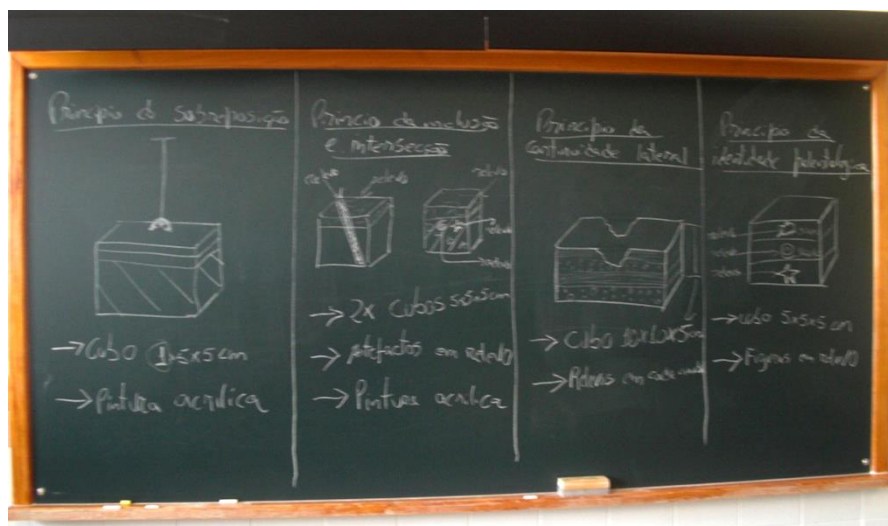 Principio da sobreposição
→ Cubo 1×5×5cm
→ Pintura acrílica
Princio da inclusão
e interseção
relevo
relevo
relevo
relevo
→ 2x Cubos 5x5x5cm
→ artefactos em relevo
→ Pintura acrílica
Principio da
continuidade lateral
→ Cubo 10x10x5cm
→ Relevos em cada
Principo da
identidade paleontologica
relevo
relevo
→ cubo 5x5x5 cm
→ Figuras em relevo